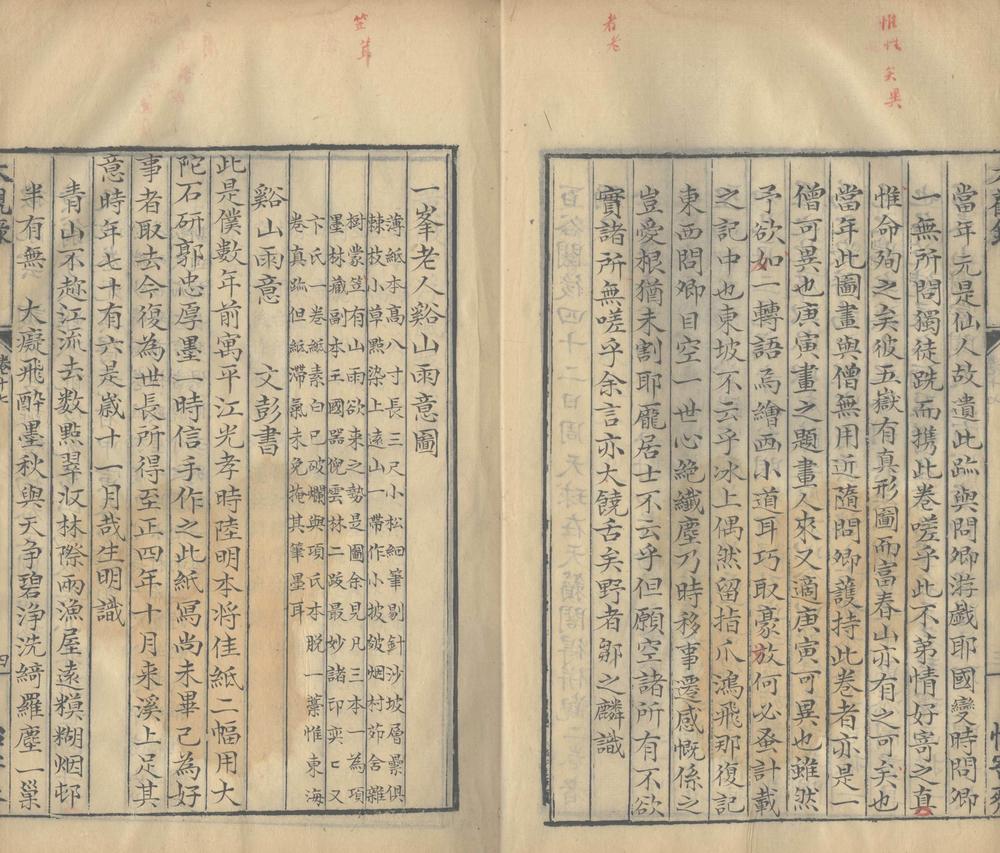 惟性
矣異
者老
當年元是仙人故遺此跡與問卿游戲耶國變時問卿
一無所問獨徒跣而攜此卷嗟乎此不第情好寄之真
惟命殉之矣彼五嶽有真形圖而富春山亦有之可矣也
當年此圖畫與僧無用近隨問卿護持此卷者亦是一
僧可異也庚寅畫之題畫人來又適庚寅可異也雖然
予欲如一轉語為繪画小道耳巧取豪放何必蚤計載
之記中也東坡不云乎冰上偶然留指爪鴻飛那復記
東西問卿目空一世心絕纖塵乃時移事遷感慨係之
豈愛根猶未割耶龐居士不云乎但願空諸所有不欲
實諸所無嗟乎余言亦大饒舌矣野者鄒之麟識
一峯老人谿山雨意圖
薄紙本高八寸長三尺小松細筆剔針沙坡層曇俱
棘枝小草點染上遠山一帶作小披皴烟村茆舍雜
樹叢荳有山雨欲来之勢是圖余見凡三本一為項
墨林藏副本王國器倪雲林二跋最妙諸印奕匕又
卞氏一卷紙素白已破爛與項氏本脫一藁惟東海
卷真跡但紙滯氣未免掩其筆墨耳
谿山雨意　文彭書
此是僕數年前寓平江光孝時陸明本将佳紙二幅用大
陀石研郭忠厚墨一時信手作之此紙寫尚未畢已為好
事者取去今復為世長所得至正四年十月来溪上足其
意時年七十有六是歲十一月哉生明識
青山不趂江流去數點翠収林際雨漁屋遠糢糊烟邨
半有無　大癡飛醉墨秋與天争碧浄洗綺羅塵一巢
卷十七
四